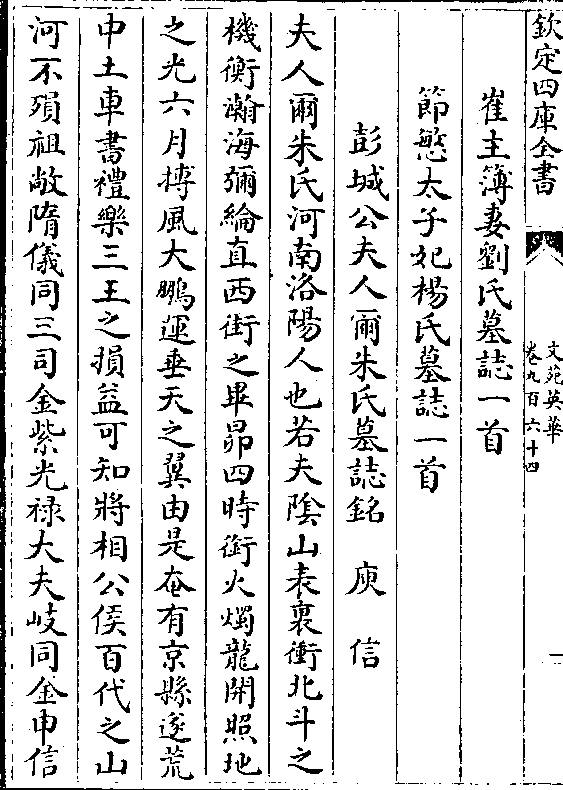 欽定四庫全書
文苑英華
卷九百六十四
一
崔主簿妻劉氏墓誌一首
節愍太子妃楊氏墓誌一首
彭城公夫人爾朱氏墓誌銘 庾信
夫人爾朱氏河南洛陽人也若夫陰山表裏衝北斗之
機衡瀚海彌綸直西街之畢昴四時銜火燭龍開照地
之光六月摶風大鵬運垂天之翼由是奄有京縣遂荒
中土車書禮樂三王之損益可知將相公侯百代之山
河不殞祖敞隋儀同三司金紫光禄大夫岐同金申信